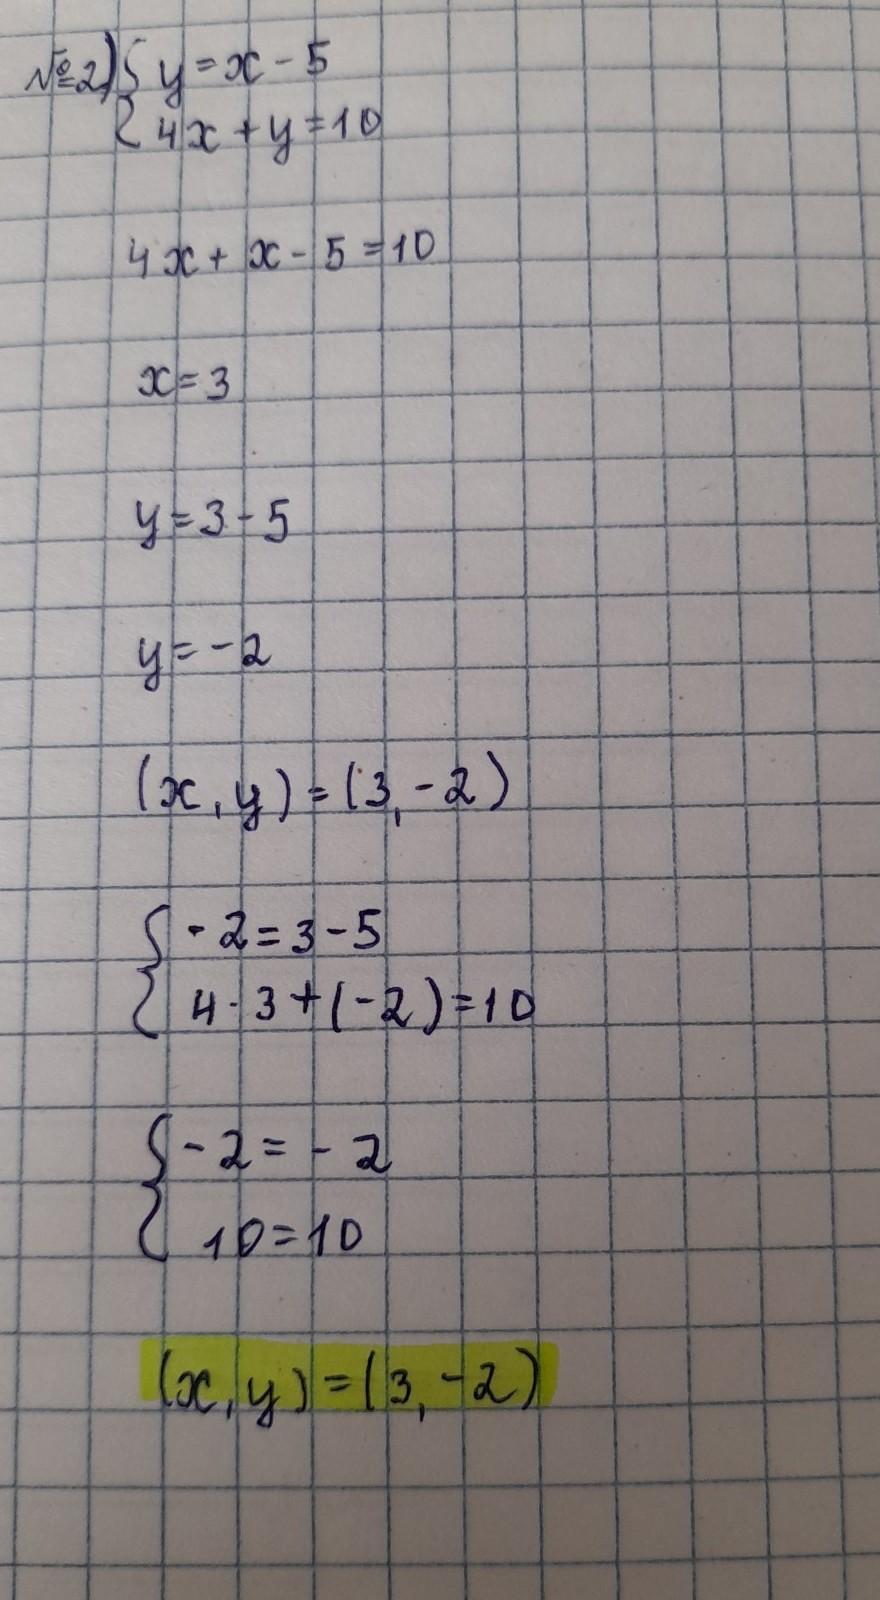 №2) { y = x - 5
{ 4x + y = 10
4x + x - 5 = 10
x = 3
y = 3 - 5
y = -2
(x, y) = (3, -2)
{ -2 = 3 - 5
{ 4 · 3 + (-2) = 10
{ -2 = -2
{ 10 = 10
(x, y) = (3, -2)